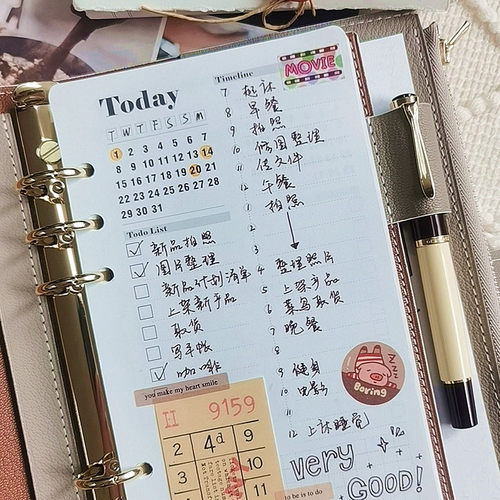 Today
T W T F S S M
1 2 3 4 5 6 7
8 9 10 11 12 13 14
15 16 17 18 19 20 21
22 23 24 25 26 27 28
29 30 31
Todo List
新品拍照
图片整理
新品计划清单
上架新产品
取货
写手帐
咖啡
you make my heart smile
II 9159
2 4d 9
3 10
4 11
Timeline
MOVIE
7 起床
8 早餐
9 拍照
10 修图整理
11 传文件
12 午餐
1 拍照
2
3
4 整理照片
5 上架产品
6 菜鸟取货
7 晚餐
8
9 健身
10 电影
11
12 上床睡觉
zzz
Boring
very
GOOD!
to be is to do